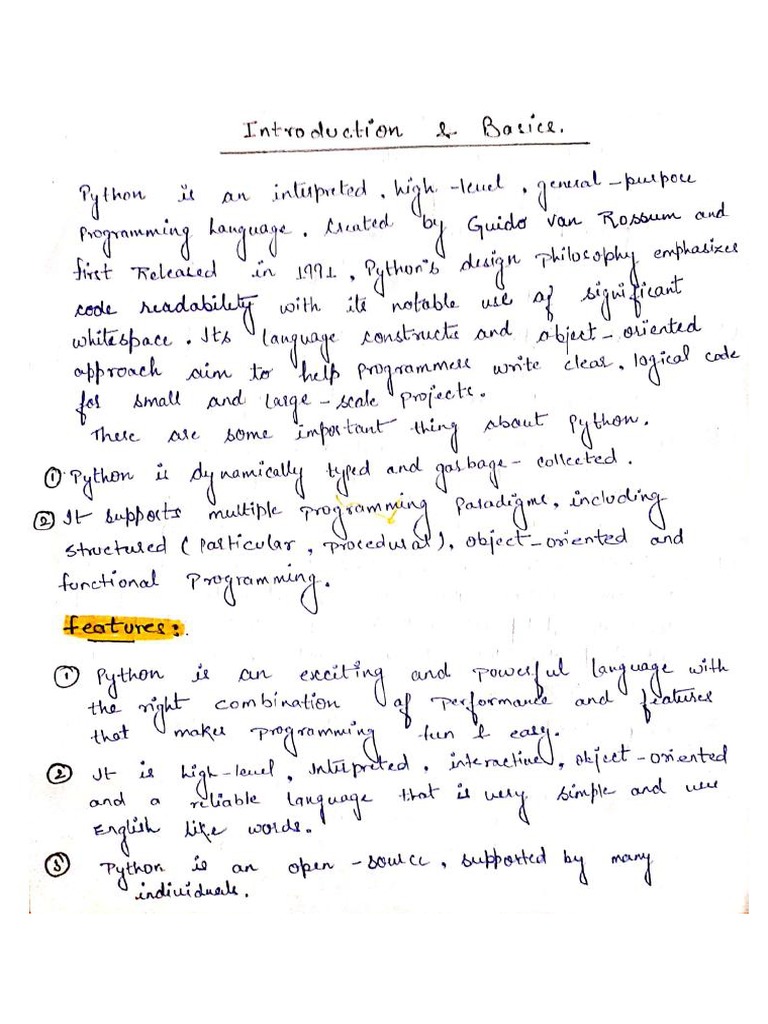 Introduction & Basics.
Python is an interpreted, high-level, general-purpose
Programming Language. Created by Guido van Rossum and
first Released in 1991, Python's design Philosophy emphasizes
code readability with its notable use of significant
whitespace. Its language constructs and object-oriented
approach aim to help Programmers write clear, logical code
for small and large-scale Projects.
These are some important thing about Python.
① Python is dynamically typed and garbage-collected.
② It supports multiple programming Paradigms, including
structured (Particular, Procedural), object-oriented and
functional Programming.
features:
① Python is an exciting and powerful language with
the right combination of performance and features
that makes programming fun & easy.
② It is high-level, Interpreted, interactive, object-oriented
and a reliable language that is very simple and use
English like words.
③ Python is an open-source, supported by many
individuals.